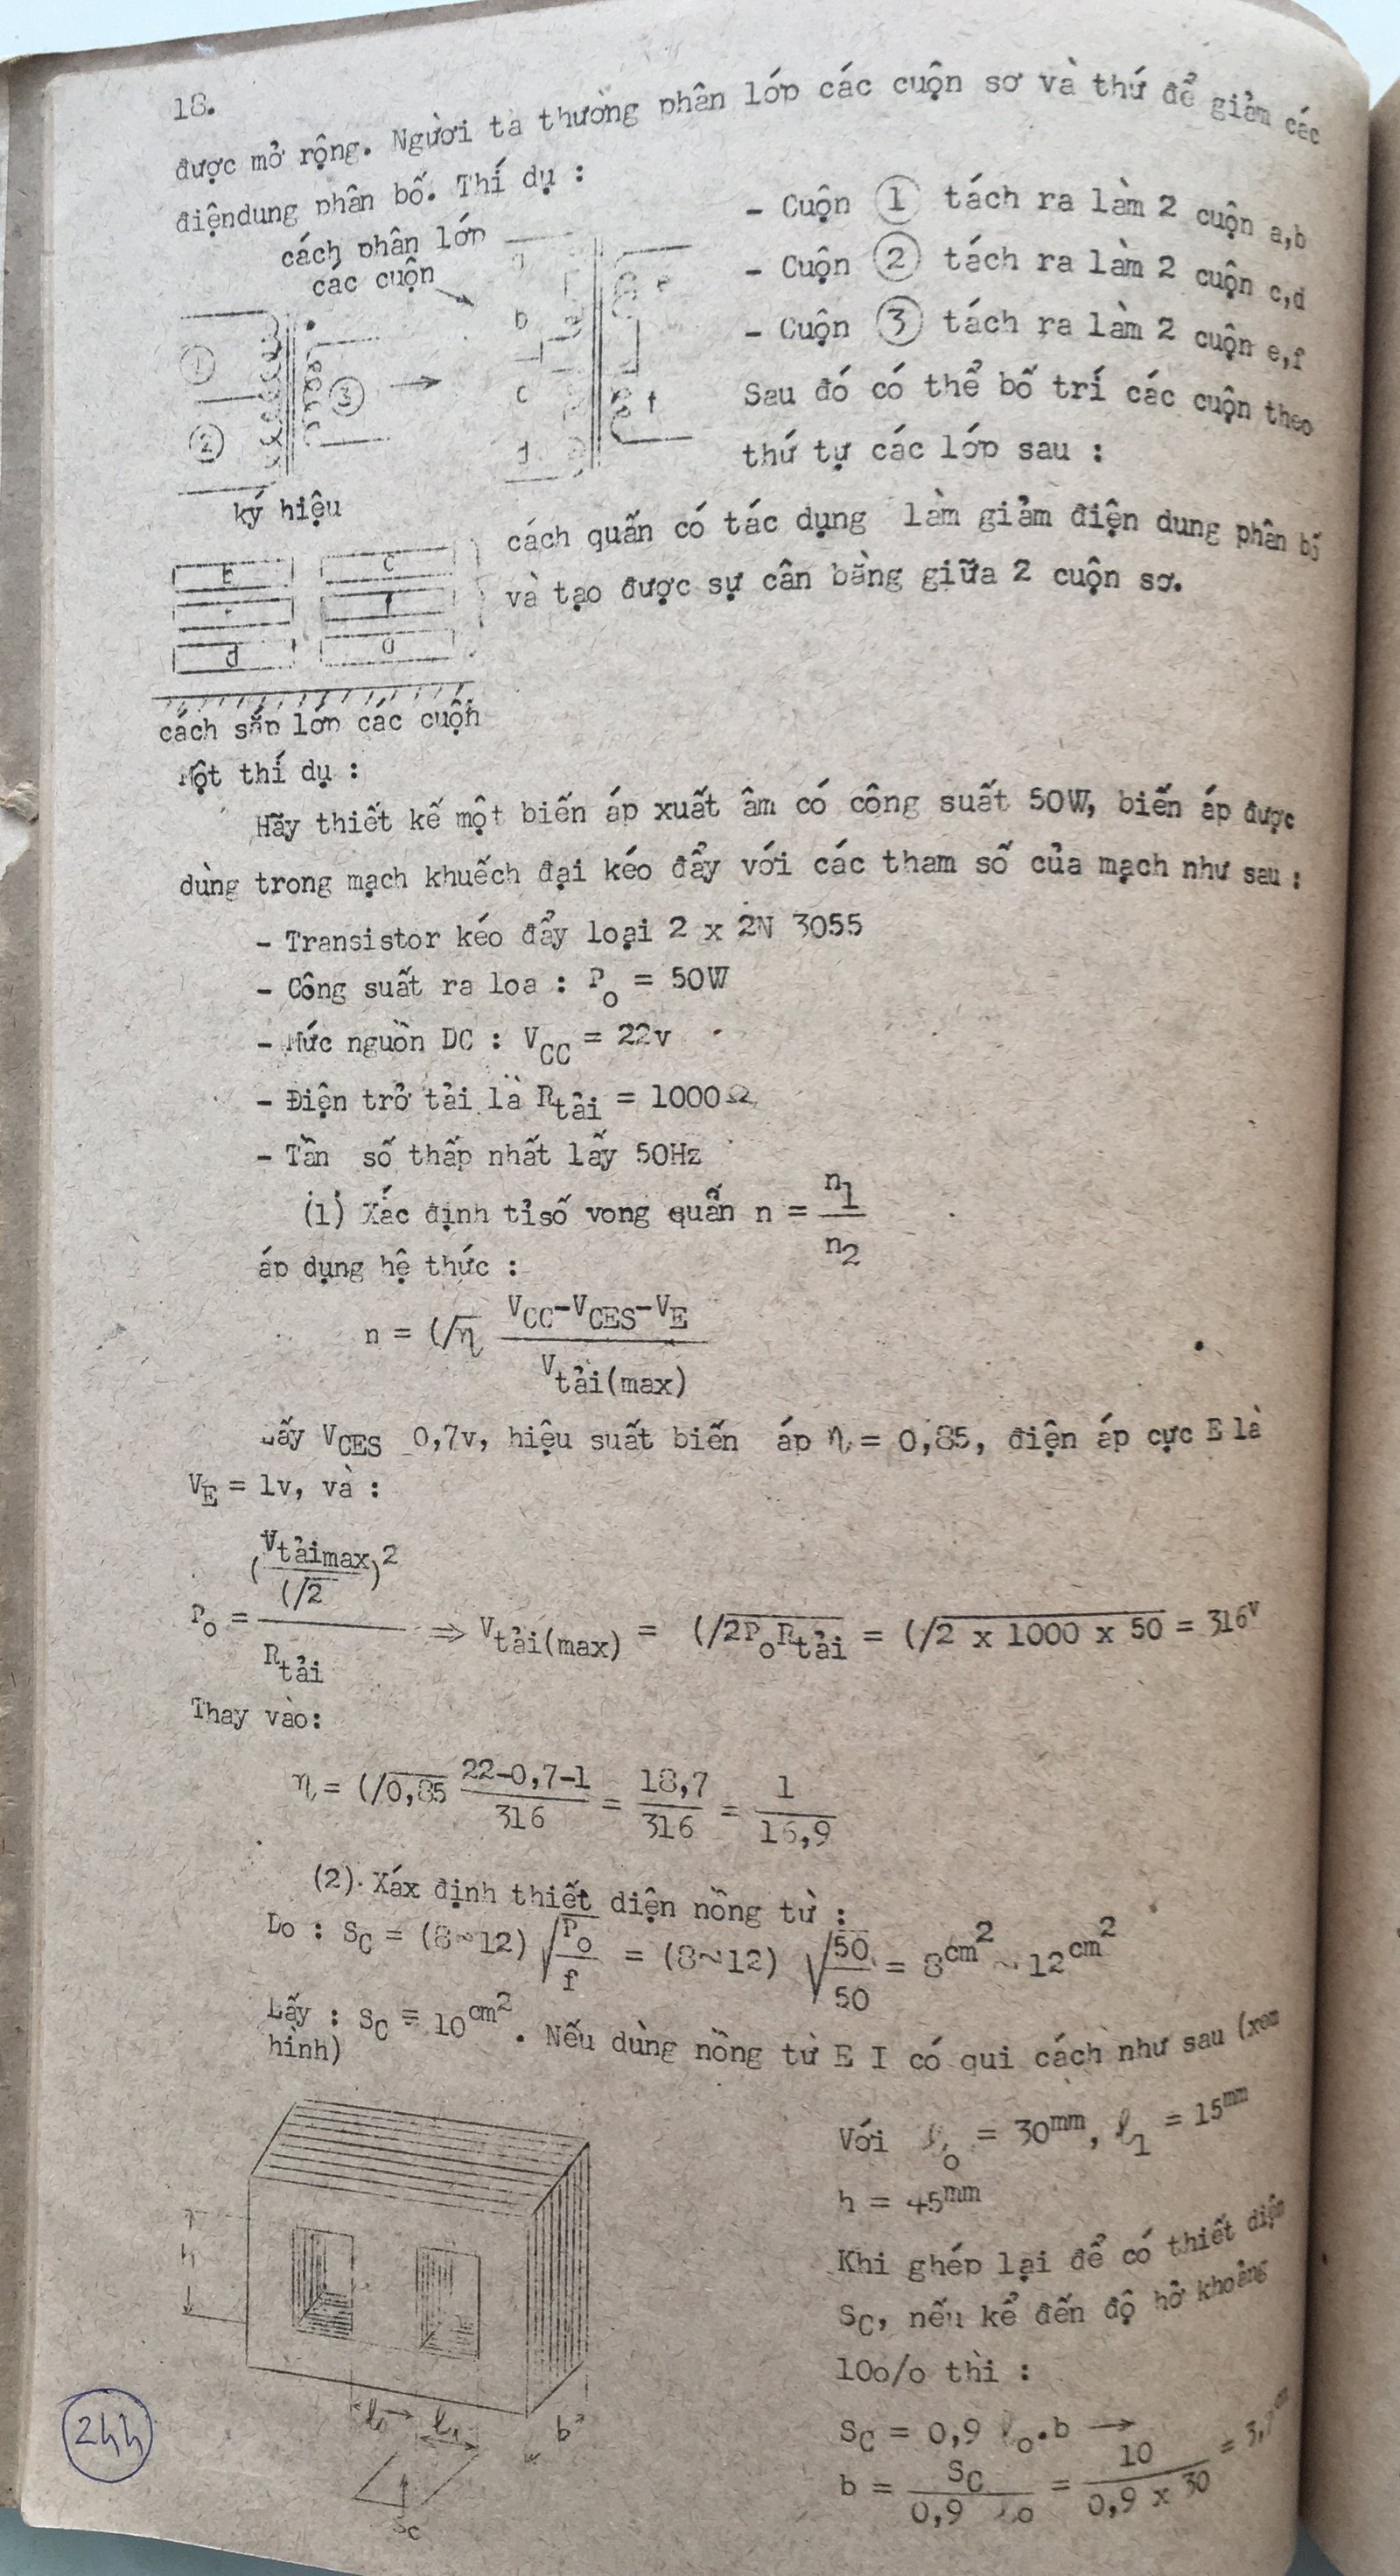 18.
được mở rộng. Người ta thường phân lớp các cuộn sơ và thứ để giảm các
điệndung phân bố. Thí dụ :
cách phân lớp
các cuộn
- Cuộn 1 tách ra làm 2 cuộn a,b
- Cuộn 2 tách ra làm 2 cuộn c,d
- Cuộn 3 tách ra làm 2 cuộn e,f
Sau đó có thể bố trí các cuộn theo
thứ tự các lớp sau :
1
2
3
b
c
d
e
f
ký hiệu
cách quấn có tác dụng làm giảm điện dung phân bố
và tạo được sự cân bằng giữa 2 cuộn sơ.
b c
f
d a
cách sắp lớp các cuộn
Một thí dụ :
Hãy thiết kế một biến áp xuất âm có công suất 50W, biến áp được
dùng trong mạch khuếch đại kéo đẩy với các tham số của mạch như sau :
- Transistor kéo đẩy loại 2 x 2N 3055
- Công suất ra loa : Po = 50W
- Mức nguồn DC : VCC = 22v
- Điện trở tải là Rtải = 1000Ω
- Tần số thấp nhất lấy 50Hz
(1) Xác định tỉsố vong quấn n = n1/n2
áp dụng hệ thức :
n = (/η VCC-VCES-VE / Vtải(max)
Lấy VCES 0,7v, hiệu suất biến áp η = 0,85, điện áp cực E là
VE = 1v, và :
Po = (Vtảimax/(/2)2 / Rtải => Vtải(max) = (/2PoRtải = (/2 x 1000 x 50 = 316v
Thay vào:
η = (/0,85 22-0,7-1/316 = 18,7/316 = 1/16,9
(2). Xáx định thiết diện nồng từ :
Do : SC = (8~12) √Po/f = (8~12) √50/50 = 8cm2 ~ 12cm2
Lấy : SC = 10cm2. Nếu dùng nồng từ E I có qui cách như sau (xem
hinh)
Với ℓo = 30mm, ℓ1 = 15mm
h = 45mm
Khi ghép lại để có thiết diện
SC, nếu kể đến độ hở khoảng
10o/o thì :
SC = 0,9 ℓo.b →
b = SC / 0,9 ℓo = 10 / 0,9 x 30 = 3,7cm
h
ℓ1
b
Sc
244